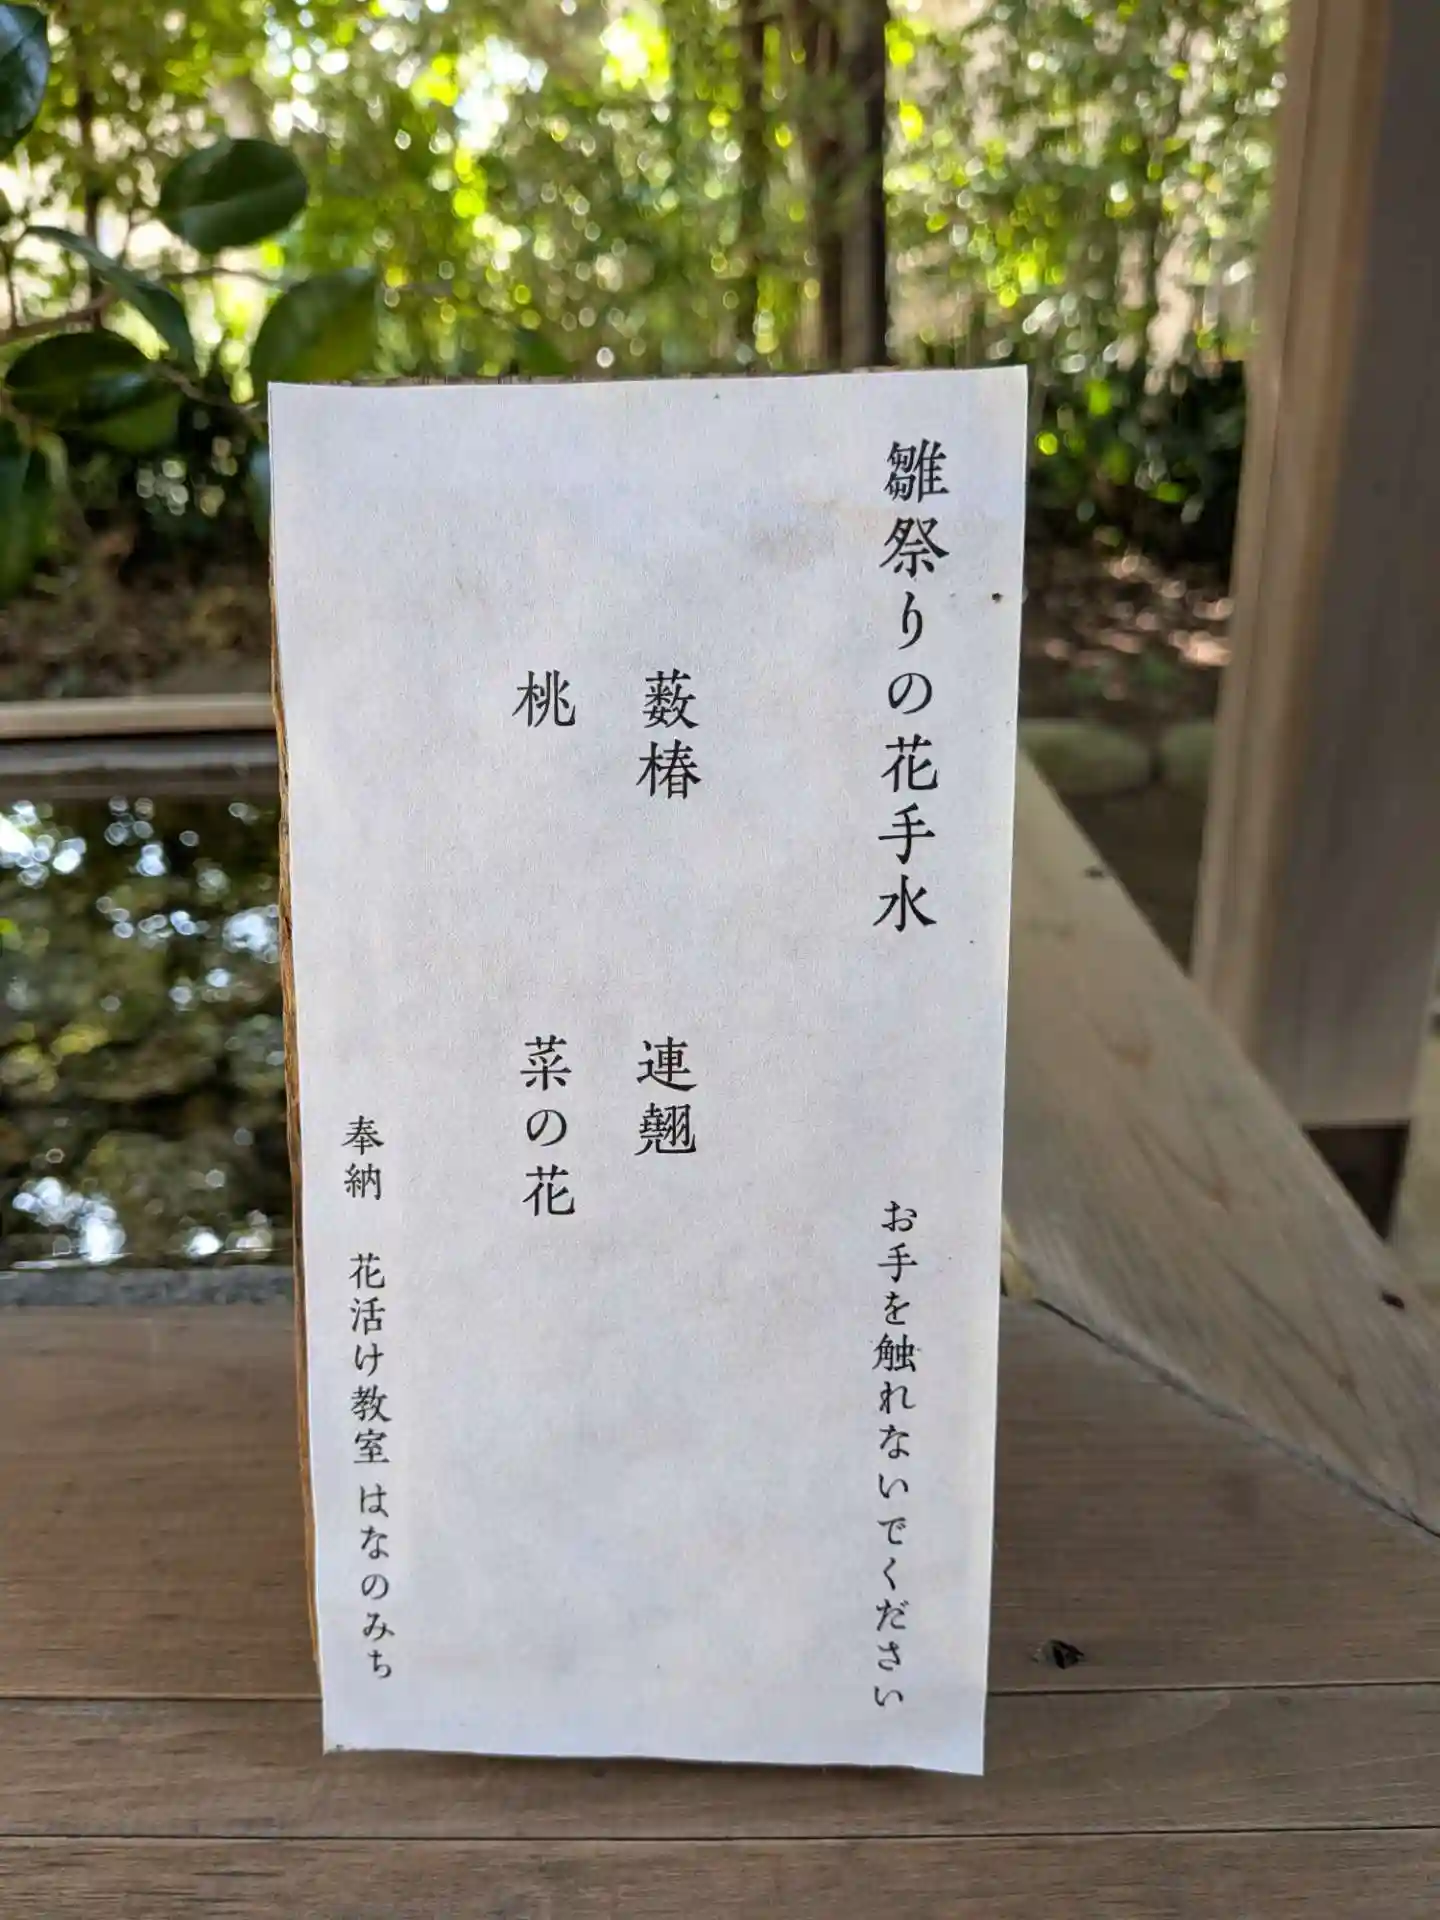 雛祭りの花手水　お手を触れないでください
薮椿　連翹
桃　菜の花
奉納　花活け教室 はなのみち